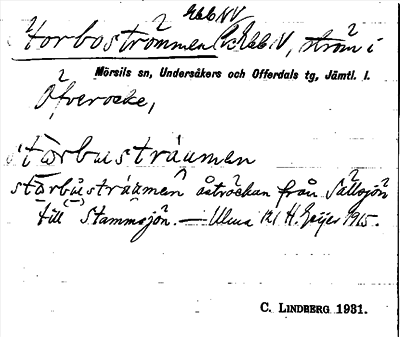 Gbl NV
Torboströmmen Gbl V, ström i
Mörsils sn, Undersåkers och Offerdals tg, Jämtl. l.
Ofverocke,
tørbustráumen
stǻrbústráumen åsträckan från Sällsjön
till Stammsjön. — Ulma 121 H. Geijer 1915.
C. LINDBERG 1931.